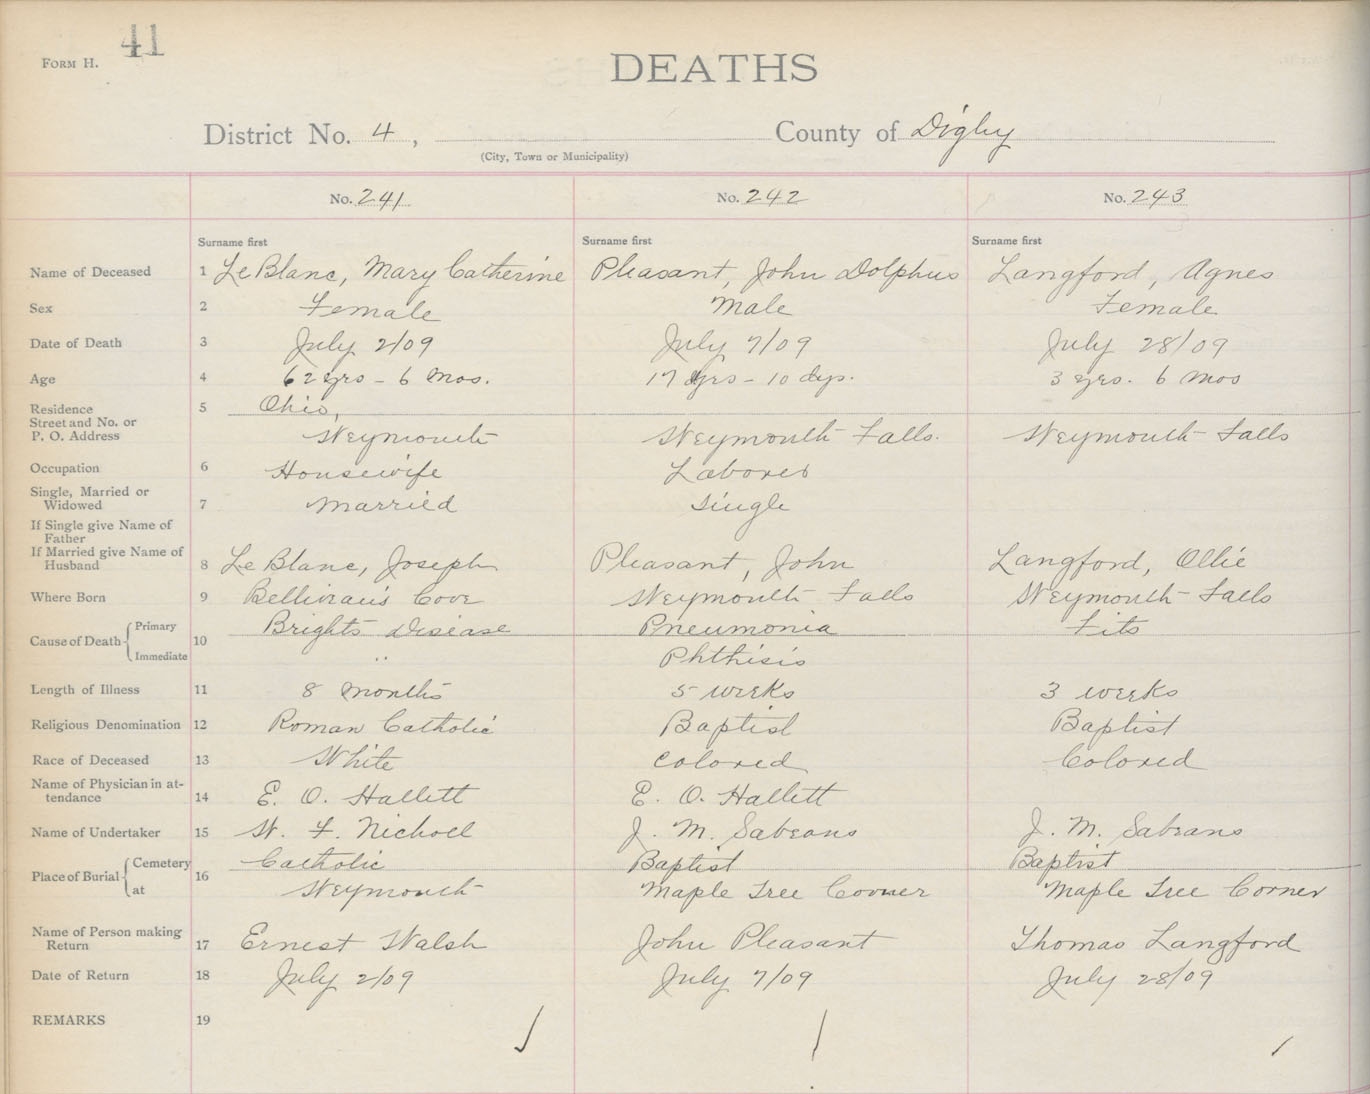 41
FORM H.
DEATHS
District No. 4, County of Digby
(City, Town or Municipality)
No. 241 No. 242 No. 243
Surname first Surname first Surname first
Name of Deceased 1 LeBlanc, Mary Catherine Pleasant, John Dolphus Langford, Agnes
Sex 2 Female Male Female
Date of Death 3 July 2/09 July 7/09 July 28/09
Age 4 62 yrs - 6 mos. 17 yrs - 10 dys. 3 yrs. 6 mos
Residence 5 Ohio,
Street and No. or
P. O. Address Weymouth Weymouth Falls. Weymouth Falls
Occupation 6 Housewife Laborer
Single, Married or
Widowed 7 Married Single
If Single give Name of
Father
If Married give Name of
Husband 8 Le Blanc, Joseph Pleasant, John Langford, Ollie
Where Born 9 Belliveau's Cove Weymouth Falls Weymouth Falls
Cause of Death Primary 10 Brights Disease Pneumonia Fits
Immediate " Phthisis
Length of Illness 11 8 months 5 weeks 3 weeks
Religious Denomination 12 Roman Catholic Baptist Baptist
Race of Deceased 13 White Colored Colored
Name of Physician in at-
tendance 14 E. O. Hallett E. O. Hallett
Name of Undertaker 15 W. F. Nicholl J. M. Sabeans J. M. Sabeans
Place of Burial Cemetery 16 Catholic Baptist Baptist
at Weymouth Maple Tree Corner Maple Tree Corner
Name of Person making
Return 17 Ernest Walsh John Pleasant Thomas Langford
Date of Return 18 July 2/09 July 7/09 July 28/09
REMARKS 19